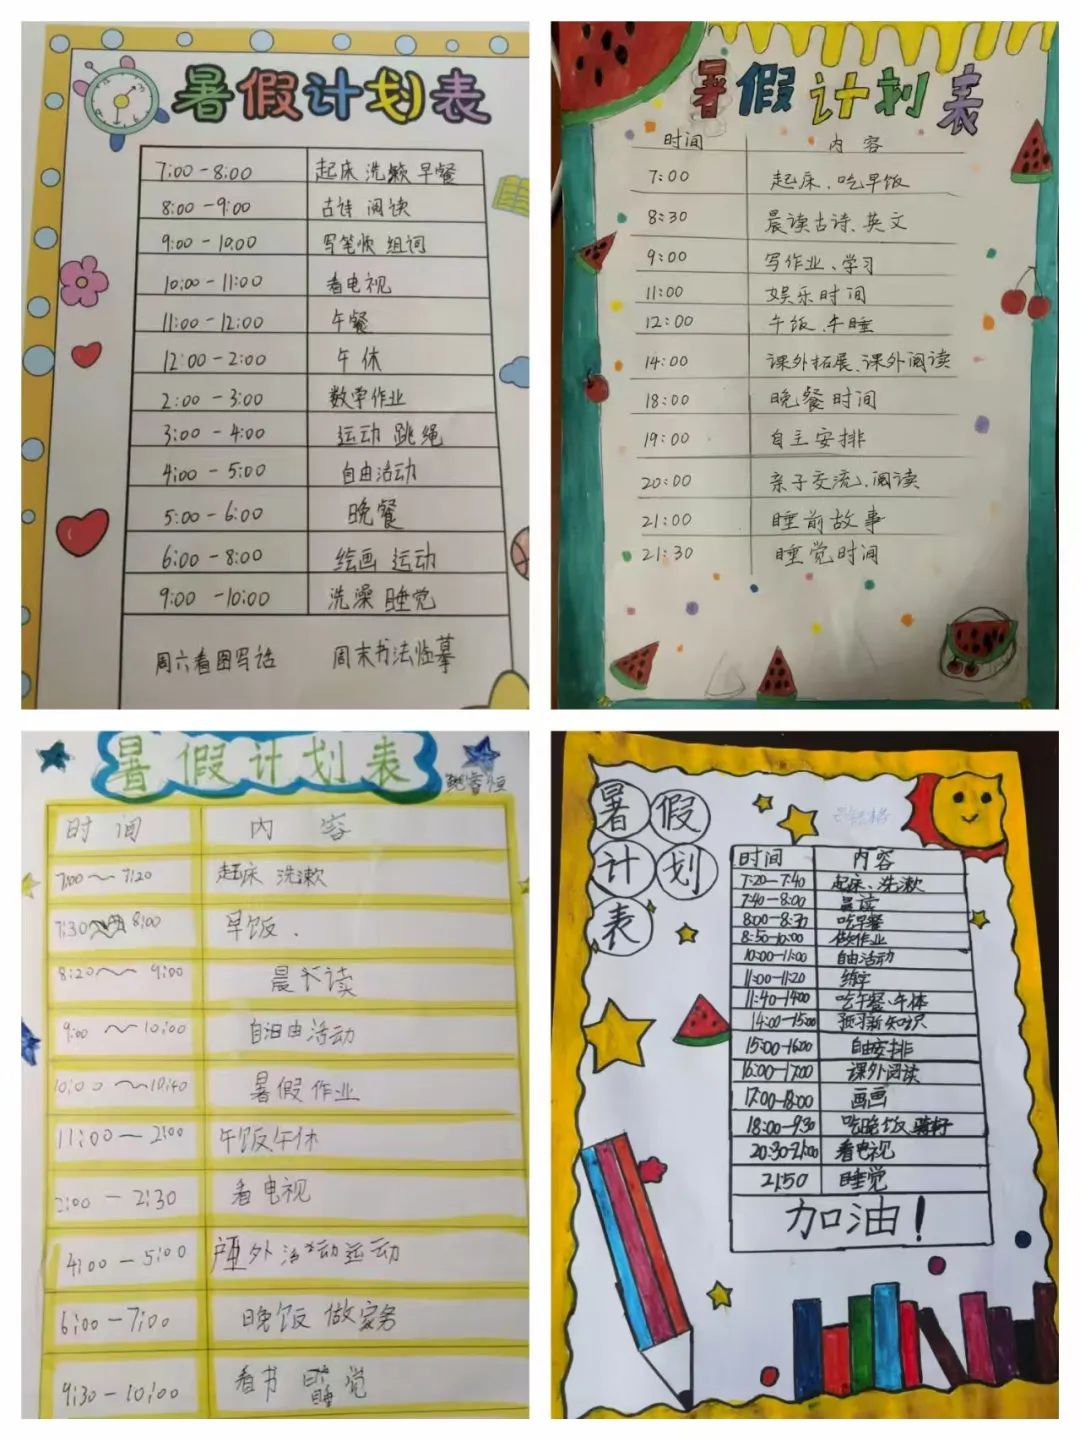 暑假计划表
7:00-8:00 起床 洗漱 早餐
8:00-9:00 古诗 阅读
9:00-10:00 写笔顺 组词
10:00-11:00 看电视
11:00-12:00 午餐
12:00-2:00 午休
2:00-3:00 数学作业
3:00-4:00 运动 跳绳
4:00-5:00 自由活动
5:00-6:00 晚餐
6:00-8:00 绘画 运动
9:00-10:00 洗澡 睡觉
周六看图写话 周末书法临摹
暑假计划表
时间 内容
7:00 起床、吃早饭
8:30 晨读古诗、英文
9:00 写作业、学习
11:00 娱乐时间
12:00 午饭、午睡
14:00 课外拓展、课外阅读
18:00 晚餐时间
19:00 自主安排
20:00 亲子交流、阅读
21:00 睡前故事
21:30 睡觉时间
暑假计划表
时间 内容
7:00~7:20 起床 洗漱
7:30 8:00 早饭.
8:20~9:00 晨读
9:00~10:00 自由活动
10:00~10:40 暑假作业
11:00-2:00 午饭午休
2:00-2:30 看电视
4:00-5:00 户外活动运动
6:00-7:00 晚饭 做家务
9:30-10:00 看书 睡觉
暑假
计划
表
时间 内容
7:20-7:40 起床、洗漱
7:40-8:00 晨读
8:00-8:30 吃早餐
8:50-10:00 做作业
10:00-11:00 自由活动
11:00-11:20 练字
11:40-14:00 吃午餐、午休
14:00-15:00 预习新知识
15:00-16:00 自由安排
16:00-17:00 课外阅读
17:00-18:00 画画
18:00-9:30 吃晚饭、
20:30-21:00 看电视
21:50 睡觉
加油!